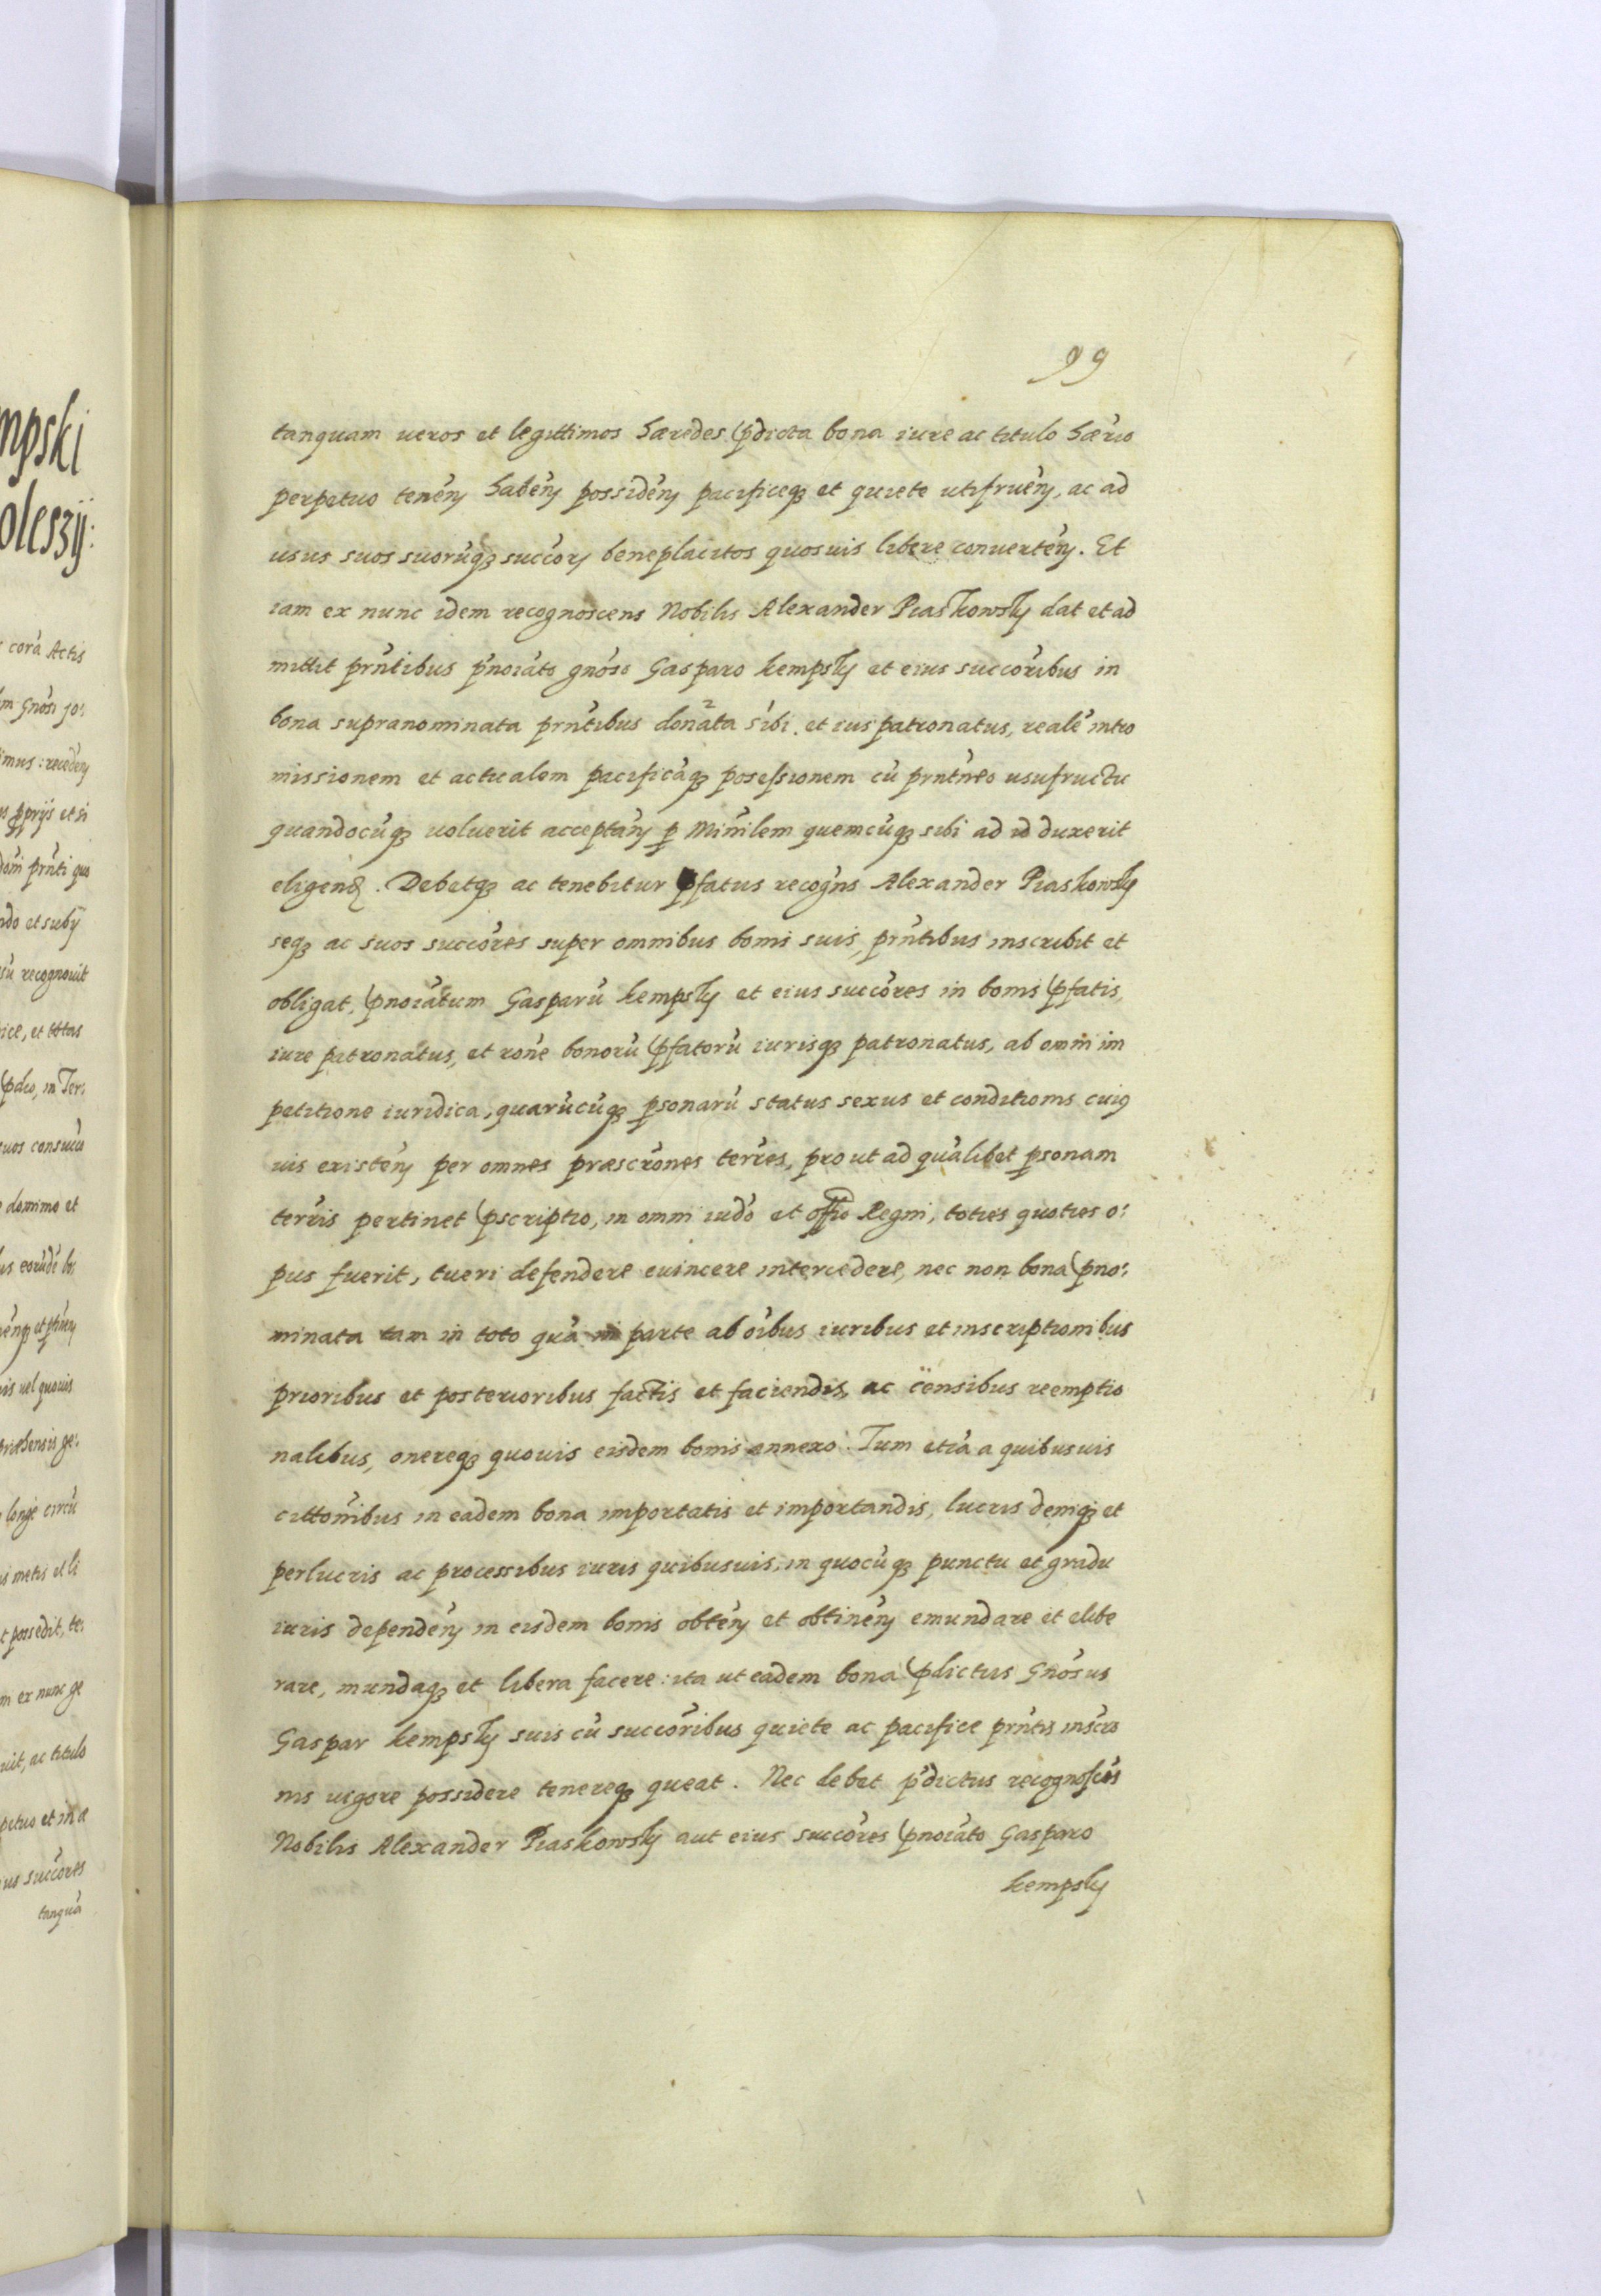 mpski
oleszÿ:
corã Actis
m Gnõsi jo:
imus: receden
pprijs et si
prñti quo
ndo et subÿ
sũ recognouit
ice, et
pdeo, in Ter:
uos consucto
domino et
us eorũde bo:
uis uel quouis
longe circũ
is metis et li
t possedit, te:
m ex nunc ge
uit, ac titulo
petuo et in æ
ius succores
tanquã
99
tanquam ueros et legittimos hæredes pdicta bona iure ac titulo hærio
perpetuo tenẽn habẽn possidẽn pacificeq3 et quiete utifruẽn, ac ad
usus suos suorũq3 succor beneplacitos quosuis libere conuertẽn. Et
iam ex nunc idem recognoscens Nobilis Alexander Piaskowsky dat et ad
mittit prñtibus pnoiãto gnõso Gasparo kempsky et eius succoribus in
bona supranominata prñtibus donata sibi et ius patronatus, realẽ intro
missionem et actualem pacificãq3 posessionem cũ prñtñeo usufructu
quandocũq3 uoluerit acceptãn p Minilem quemcũq3 sibi ad id duxerit
eligend. Debetq3 ac tenebitur pfatus recogns Alexander Piaskowsky
seq3 ac suos succores super omnibus bonis suis, prñtibus inscribit et
obligat, pnoiãtum Gasparũ kempsky et eius succores in bonis pfatis,
iure patronatus, et rone bonorũ pfatorũ iurisq3 patronatus, ab omni im
petitione iuridica, quarũcũq3 psonarũ status sexus et conditionis cuius
uis existẽn per omnes præscrones terres, pro ut ad quãlibet psonam
terris pertinet pscriptio, in omni iudo et offio Regni, toties quoties o:
pus fuerit, tueri defendere euincere intercedere, nec non bona pno:
minata tam in toto quã in parte ab oibus iuribus et inscriptionibus
prioribus et posterioribus factis et faciendis, ac censibus reemptio
nalibus, onereq3 quouis eisdem bonis annexo. Tum etiã a quibusuis
cittonibus in eadem bona importatis et importandis, lucris deniq3 et
perlucris ac processibus iuris quibusuis, in quocũq3 punctu et gradu
iuris dependẽn in eisdem bonis obtẽn et obtinẽn emundare et elibe
rare, mundaq3 et libera facere: ita ut eadem bona pdictus Gnõsus
Gaspar kempsky suis cũ succoribus quiete ac pacifice prñtis inscrio
nis uigore possidere tenereq3 queat. Nec debet pdictus recognoscẽs
Nobilis Alexander Piaskowsky aut eius succores pnoiãto Gasparo
kempsky